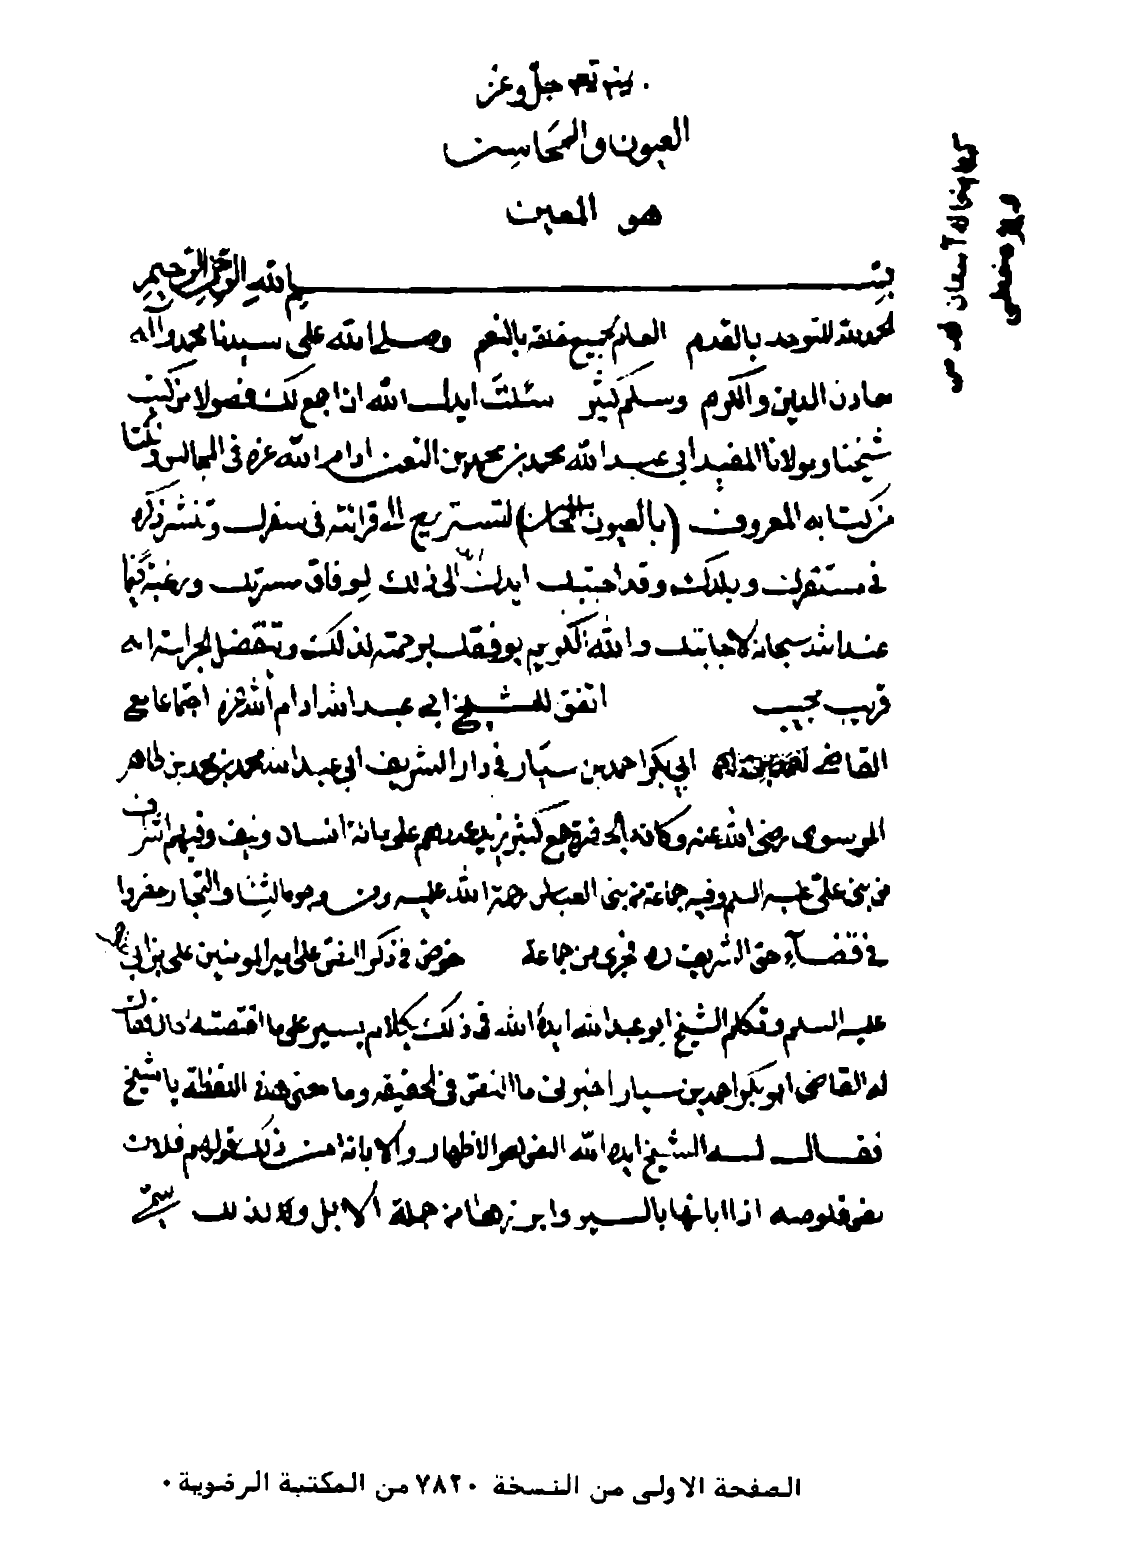 العيون والمحاسن
هو المعين
بسم الله الرحمن الرحيم
الحمد لله المتوحد بالقدم العام لجميع خلقه بالنعم وصلى الله على سيدنا محمد وآله
معادن الدين والكرم وسلم كثير سئلت ايدك الله ان اجمع لك فصولا من كتب
شيخنا ومولانا المفيد ابي عبد الله محمد بن محمد بن النعمن ادام الله عزه في المجالس ونكتا
من كتابه المعروف (بالعيون والمحاسن) لتستريح الى قرائته في سفرك وتنشر ذكره
في مستقرك وبلدك وقد اجبتك ايدك الله الى ذلك لوفاق مسرتك ورغبة فيما
عند الله سبحانه لاجابتك والله الكريم يوفقك برحمته لذلك وتفضل لجراية انه
قريب مجيب اتفق للشيخ ابي عبد الله ادام الله عزه اجتماعا مع
القاضي ابي بكر احمد بن سيار في دار الشريف ابي عبد الله محمد بن محمد بن طاهر
الموسوي رضي الله عنه وكان بالحضرة جمع كثير يزيد عددهم على مائة انسان ونيف وفيهم اشراف
من بني علي عليه السلم وفيه جماعة من بني العباس رحمة الله عليه ومن وجوه الثنا والتجار حضروا
في قضآء حق الشريف ره فجرى من جماعة خوض في ذكر النص على امير المومنين علي بن ابي طالب
عليه السلم وتكلم الشيخ ابو عبد الله ايده الله في ذلك بكلام يسير على ما اقتضته الحال فقال
له القاضي ابو بكر احمد بن سيار اخبرني ما النص في الحقيقه وما معنى هذه اللفظة يا شيخ
فقال له الشيخ ايده الله النص هو الاظهار والابانة من ذلك قولهم فلان
نص قلوصه اذا ابانها بالسير وابرزها من جملة الابل ولذلك سمي
الصفحة الاولى من النسخة ٧٨٢٠ من المكتبة الرضوية ٠